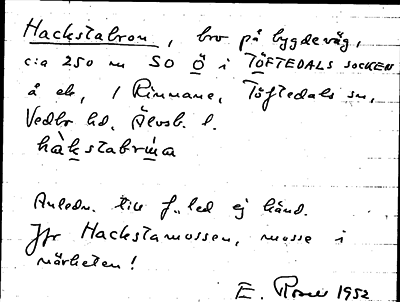 Hackstabron, bro på bygdeväg,
c:a 250 m SO Ö i TÖFTEDALS SOCKEN
å eb, 1 Rinnane, Töftedals sn,
Vedbo hd. Älvsb. l.
hàkstabrua
Anledn. till f. led ej känd.
Jfr Hackstamossen, mosse i
närheten!
E. 1952